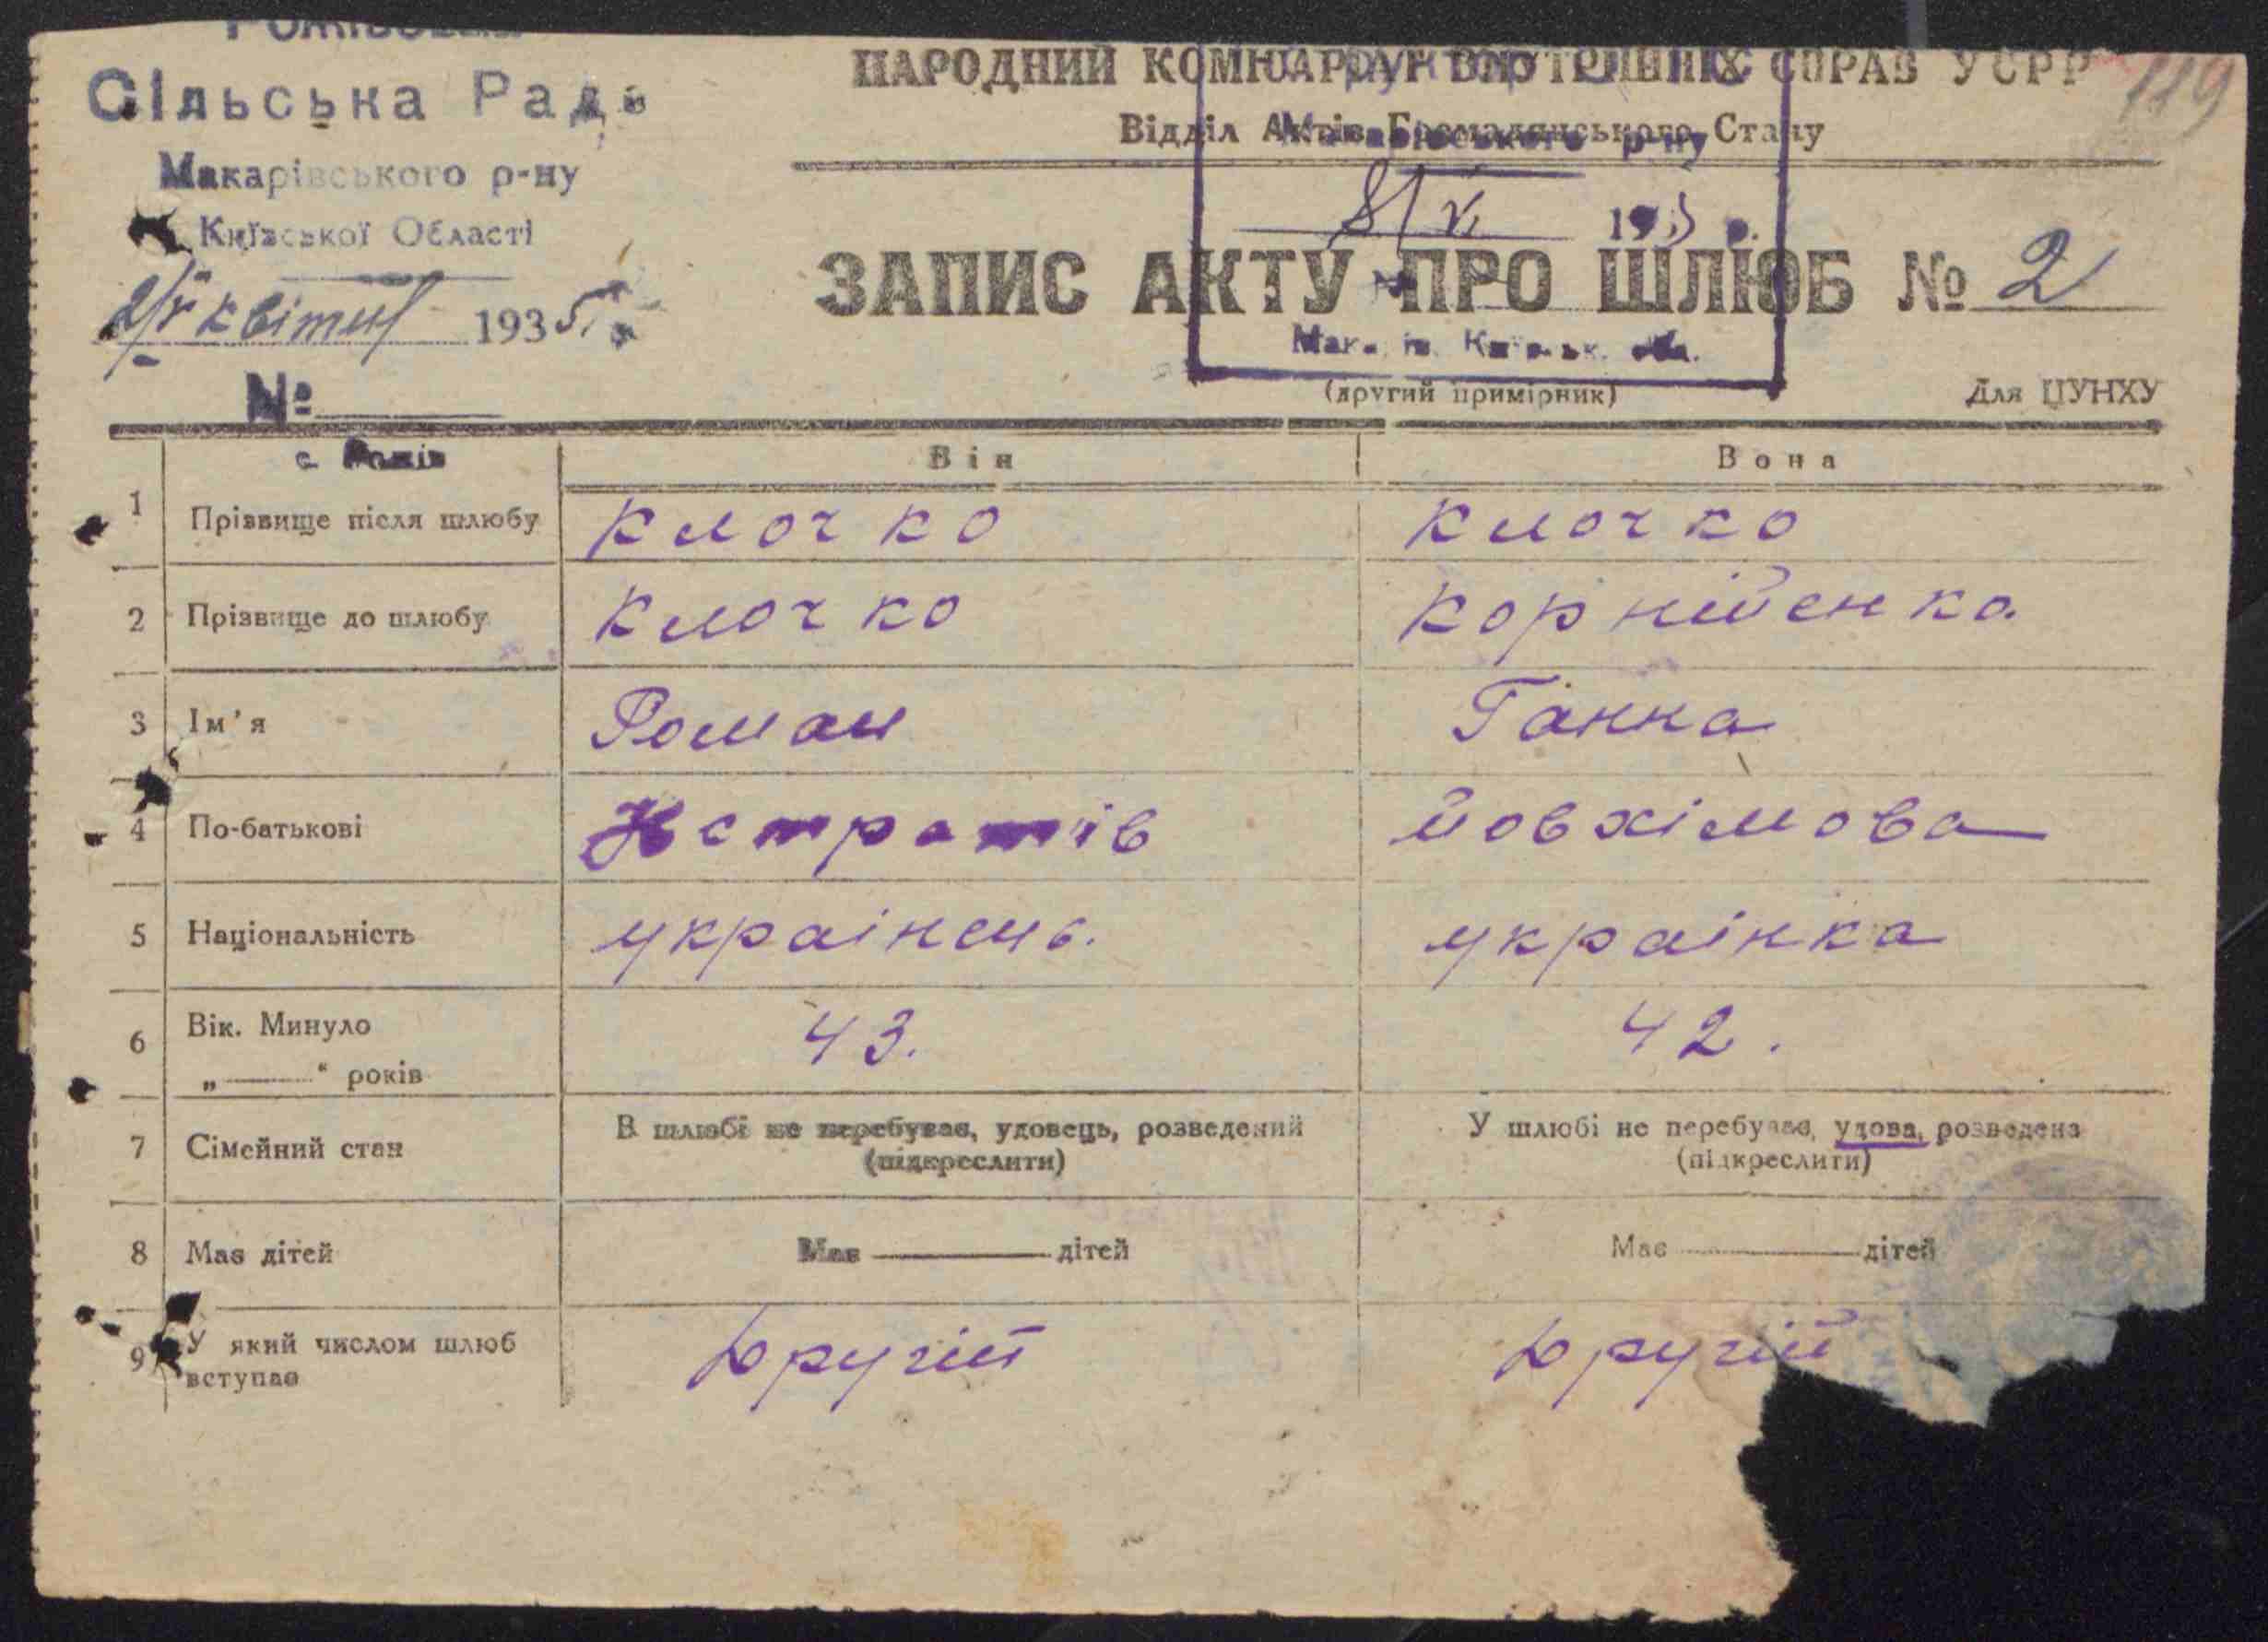 Сільська Рада
Макарівського р-ну
Київської Області
2/IV квітня 1935
№
НАРОДНИЙ КОМІСАРІЯТ ВНУТРІШНІХ СПРАВ УСРР
119
Відділ Актів Громадянського Стану
р-ну
8/VI 193 р.
ЗАПИС АКТУ ПРО ШЛЮБ № 2
(другий примірник)
Для ЦУНХУ
Він
Вона
1 Прізвище після шлюбу Клочко Клочко
2 Прізвище до шлюбу Клочко Корнійенко.
3 Ім'я Роман Ганна
4 По-батькові Йовхімова
5 Національність украінець. украінка
6 Вік. Минуло 43. 42.
„——“ років
7 Сімейний стан В шлюбі не перебуває, удовець, розведений У шлюбі не перебуває, удова, розведена
(підкреслити) (підкреслити)
8 Має дітей Має —— дітей Має —— дітей
9 У який числом шлюб Другій Другій
вступає